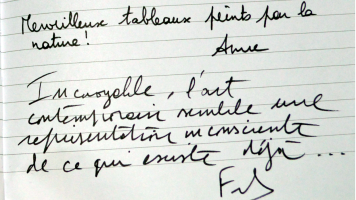 Merveilleux tableaux peints par la
nature !
Anne
Incroyable, l'art
contemporain semble une
représentation inconsciente
de ce qui existe déjà ...